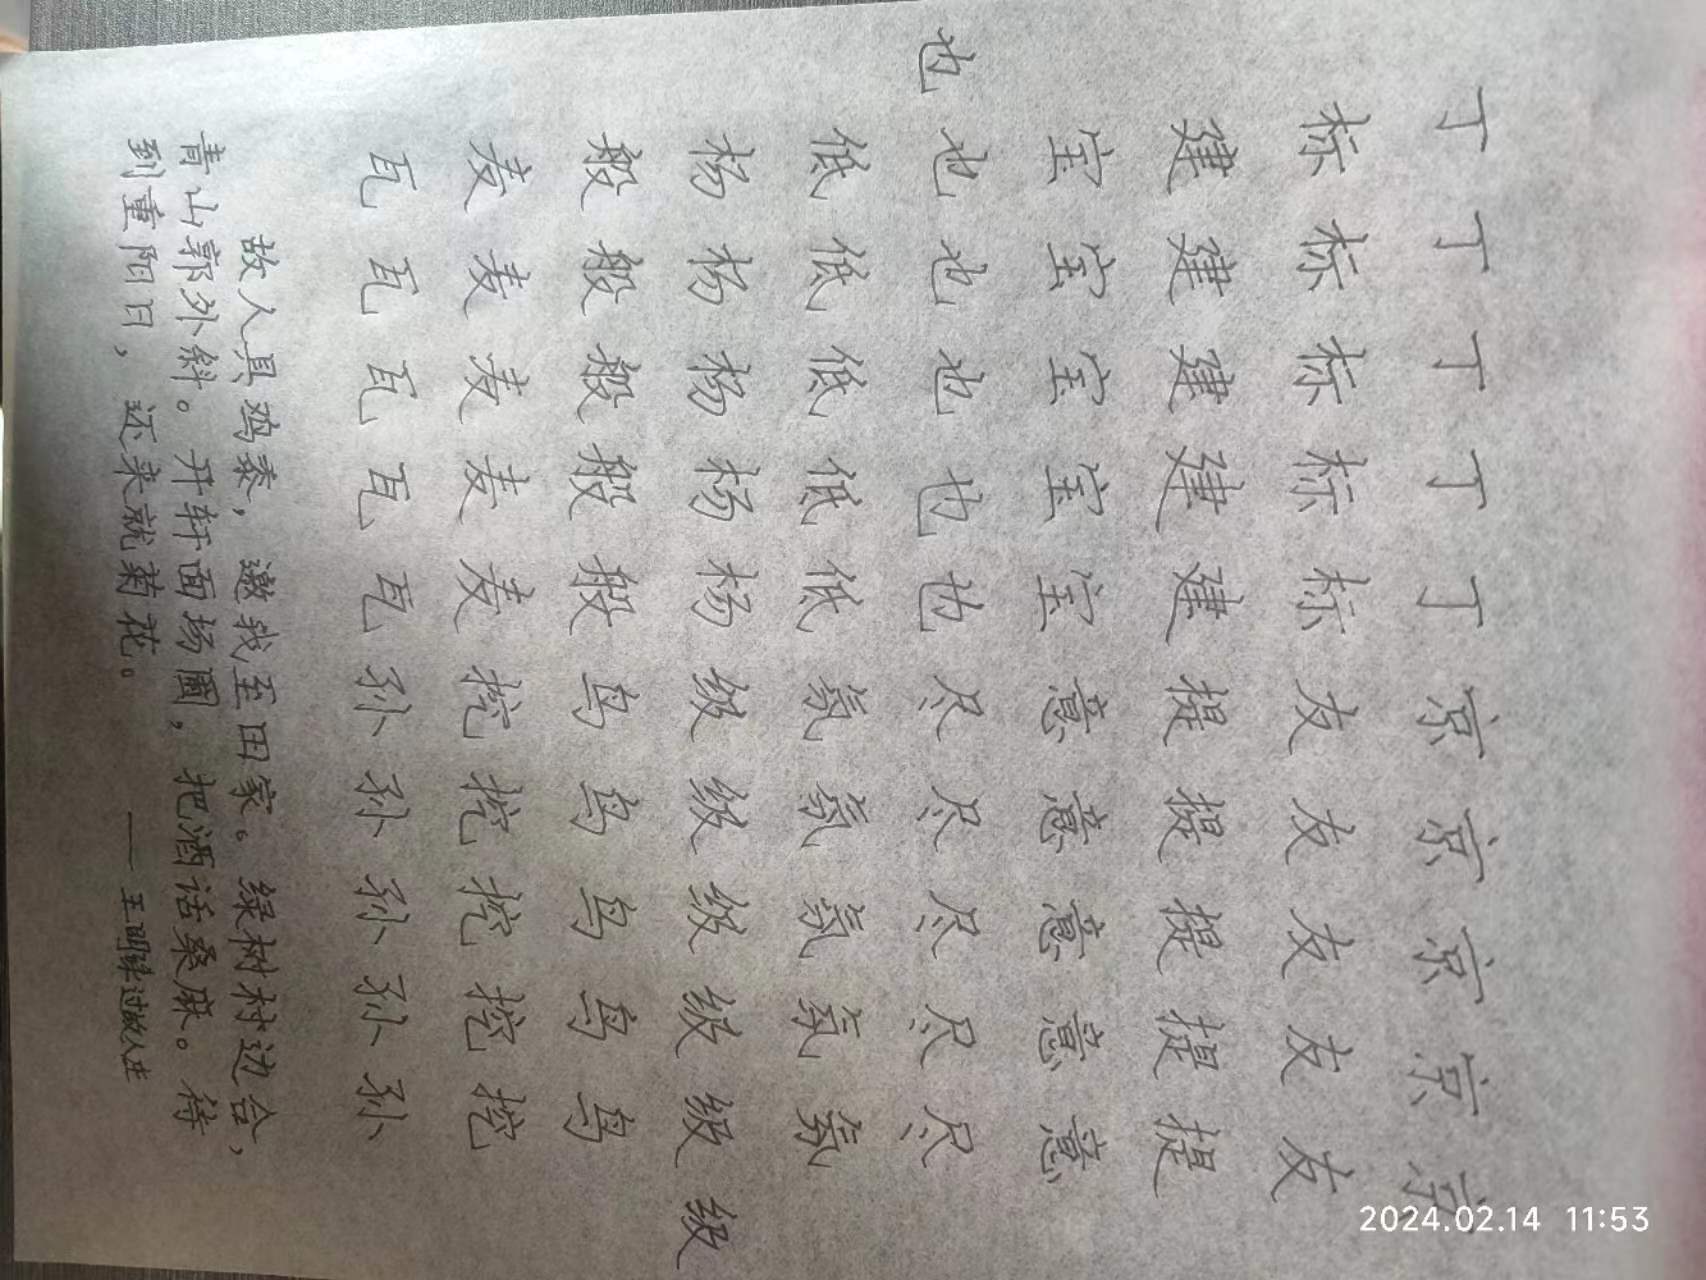 丁丁丁丁丁京京京京京
标标标标标友友友友友
建建建建建提提提提提
宝宝宝宝宝意意意意意
也也也也也也尽尽尽尽尽
低低低低低氛氛氛氛氛
杨杨杨杨杨级级级级级级
般般般般般鸟鸟鸟鸟鸟
麦麦麦麦麦挖挖挖挖挖
瓦瓦瓦瓦瓦孙孙孙孙孙
故人具鸡黍，邀我至田家。绿树村边合，
青山郭外斜。开轩面场圃，把酒话桑麻。待
到重阳日，还来就菊花。——过故人庄
2024.02.14 11:53